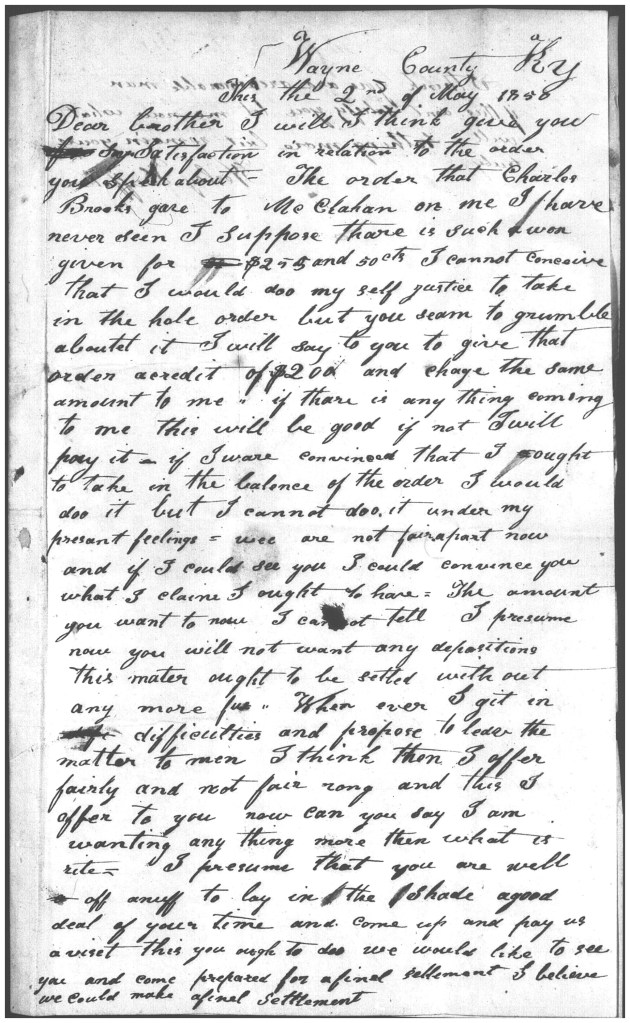 Wayne County Ky
This the 2nd of May 1850
Dear brother I will I think give you
Satisfaction in relation to the order
you Speak about = The order that Charles
Brooks gave to McClahan on me I have
never seen I suppose thare is such won
given for $2=5 and 50cts I cannot conceive
that I would doo my self justice to take
in the hole order but you seam to grumble
aboutet it I will say to you to give that
order acredit of $200 and chage the same
amount to me " if thare is any thing coming
to me this will be good if not I will
pay it = if I ware convinced that I ought
to take in the balence of the order I would
doo it but I cannot doo it under my
presant feelings = wee are not fair apart now
and if I could see you I could convince you
what I claim I ought to have = The amount
you want to now I cannot tell I presume
now you will not want any depositions
this mater ought to be setled with out
any more " When ever I git in
difficulties and propose to leave the
matter to men I think then I offer
fairly and not fair rong and this I
offer to you now can you say I am
wanting any thing more then what is
rite = I presume that you are well
off anuff to lay in the Shade agood
deal of your time and come up and pay us
a viset this you ough to doo we would like to see
you and come prepared for a finel settlement I believe
we could make afinel Settlement